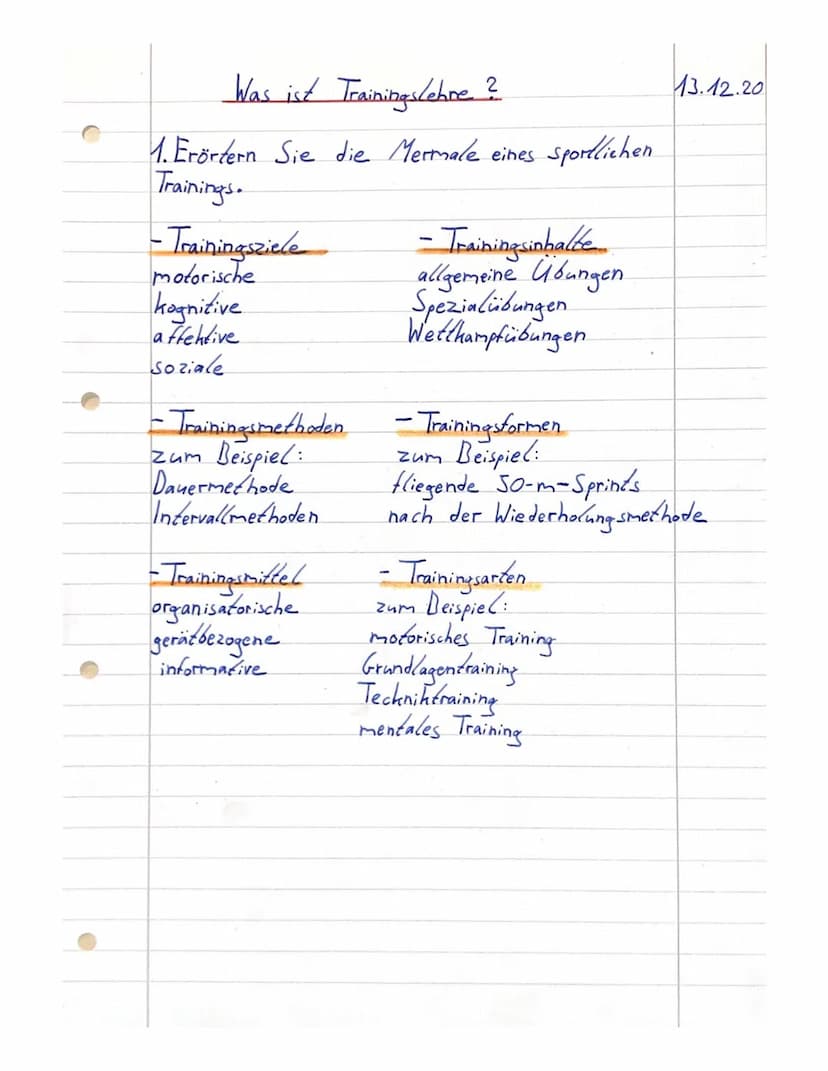 Was ist Trainingslehre?
13.12.20
1. Erörtern Sie die Mermale eines sportlichen
Trainings.
- Trainingsziele
motorische
kognitive
affektive
soziale
- Trainingsinhalte
allgemeine Übungen
Spezialübungen
Wettkampfübungen
- Trainingsmethoden
zum Beispiel:
Dauermethode
Intervallmethoden
- Trainingsformen
zum Beispiel:
fliegende 50-m-Sprints
nach der Wiederholungsmethode
- Trainingsmittel
organisatorische
gerätbezogene
informative
- Trainingsarten
zum Beispiel:
motorisches Training
Grundlagentraining
Techniktraining
mentales Training